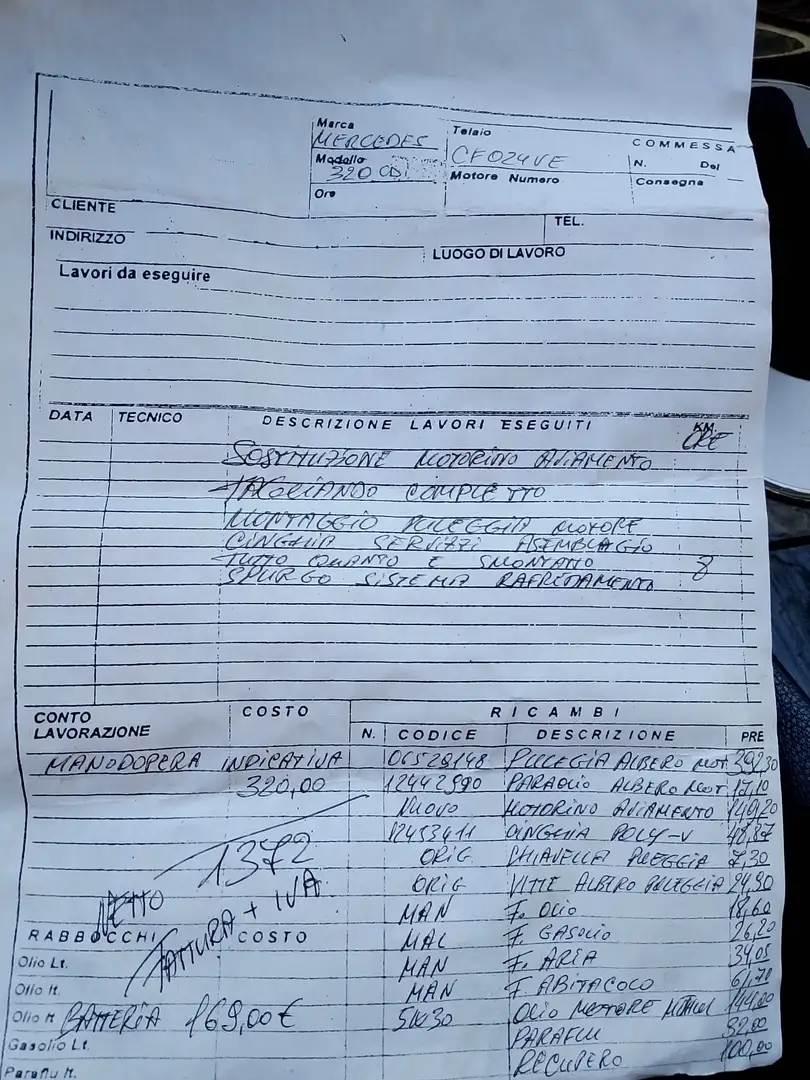 Marca
MERCEDES
Telaio
COMMESSA
Modello
320 CDI
CF024VE
N. Del
Ore
Motore Numero
Consegna
CLIENTE
TEL.
INDIRIZZO
LUOGO DI LAVORO
Lavori da eseguire
DATA TECNICO DESCRIZIONE LAVORI ESEGUITI KM
ORE
SOSTITUZIONE MOTORINO AVIAMENTO
TAGLIANDO COMPLETTO
MONTAGGIO PULEGGIA MOTORE
CINGHIA SERVIZZI ASEMBLAGIO
TUTTO QUANTO E SMONTATO 8
SPURGO SISTEMA RAFREDAMENTO
CONTO LAVORAZIONE COSTO RICAMBI
N. CODICE DESCRIZIONE PRE
MANODOPERA INDICATIVA 06528148 PULEGIA ALBERO MOT 392,30
320,00 12442990 PARAOLIO ALBERO MOT 17,10
NUOVO MOTORINO AVIAMENTO 149,20
12453411 CINGHIA POLY-V 48,87
1372 ORIG CHIAVELLA PULEGGIA 7,30
ORIG VITTE ALBERO PULEGGIA 24,90
NETTO MAN F. OLIO 18,60
FATTURA + IVA
RABBOCCHI COSTO MAL F. GASOLIO 26,20
Olio Lt. MAN F. ARIA 34,05
Olio lt. MAN F. ABITACOLO 61,70
Olio lt BATTERIA 169,00€ 5W30 OLIO MOTTORE 144,00
Gasolio Lt. PARAFLU 32,00
Paraflu lt. RECUPERO 100,00